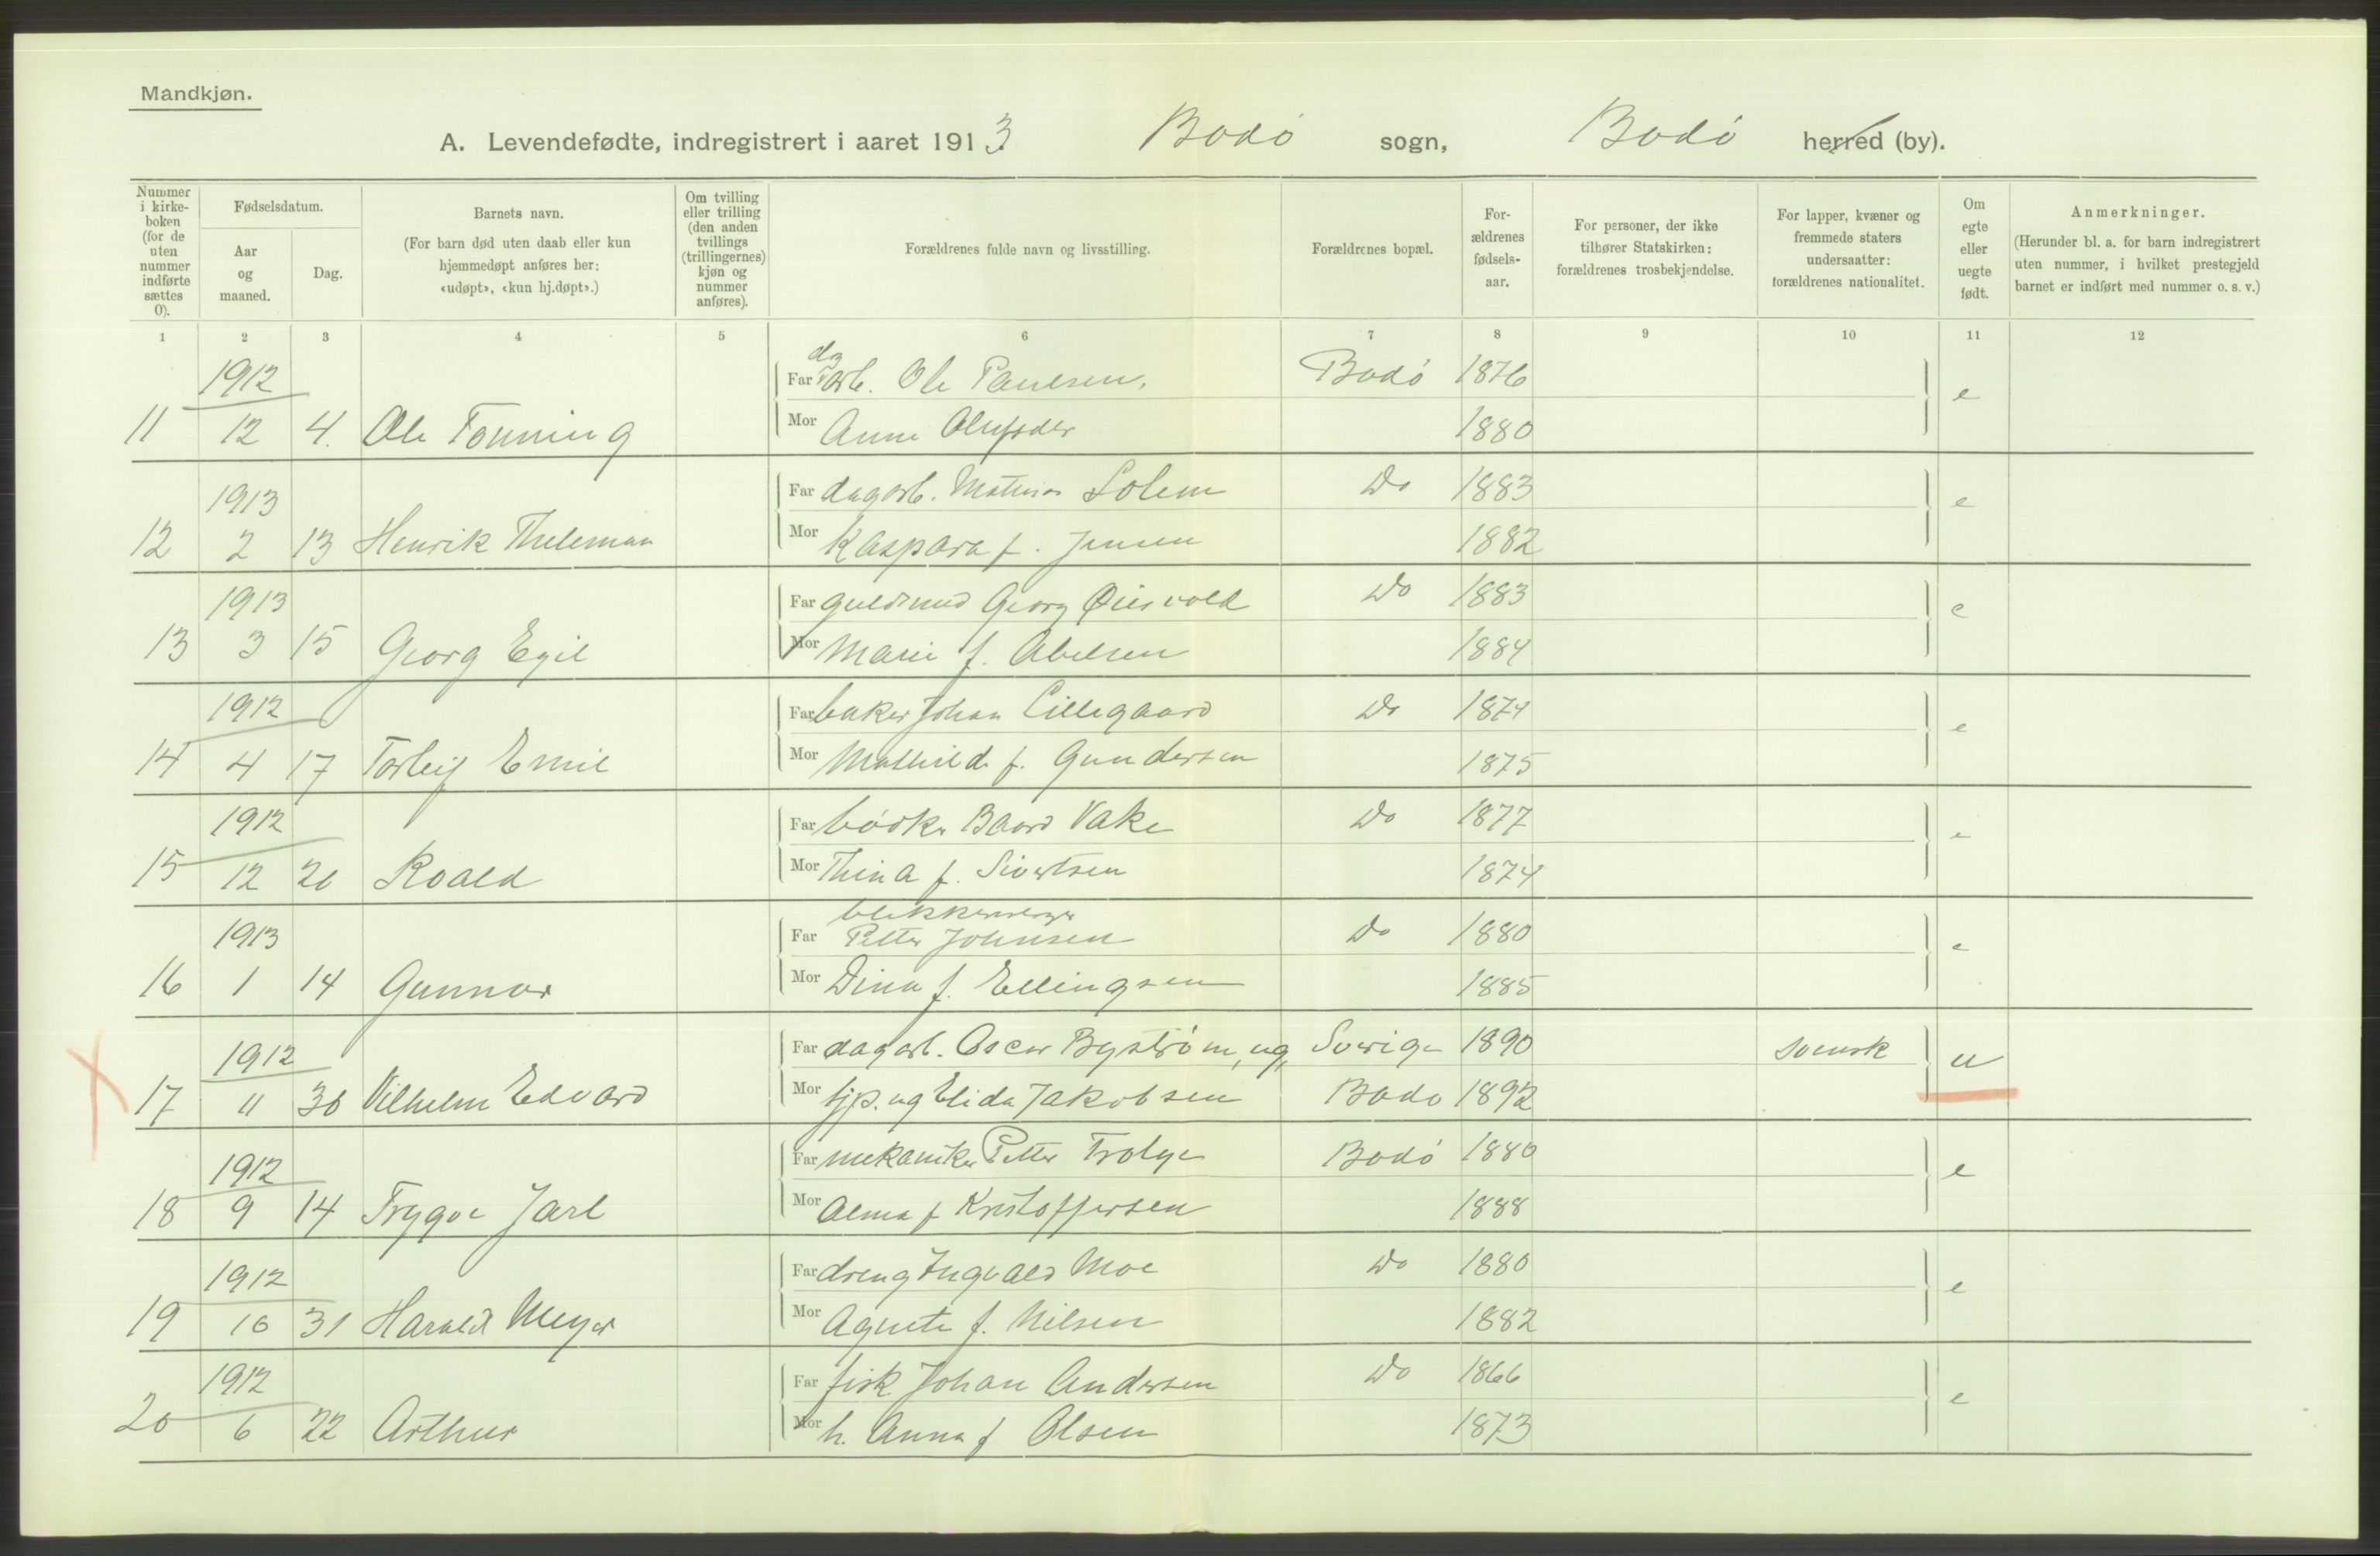 Mandkjøn.
A. Levendefødte, indregistrert i aaret 1913. Bodó sogn, Bodó herred (by).
Nummer i kirke-boken (for de uten nummer indførte sættes 0).
Fødselsdatum.
Aar og maaned.
Dag.
Barnets navn.
(For barn død uten daab eller kun hjemmedøpt anføres her: «udøpt», «kun hj.døpt».)
Om tvilling eller trilling (den anden tvillings (trillingernes) kjøn og nummer anføres).
Forældrenes fulde navn og livsstilling.
Forældrenes bopæl.
For-ældrenes fødsels-aar.
For personer, der ikke tilhører Statskirken: forældrenes trosbekjendelse.
For lapper, kvæner og fremmede staters undersaatter: forældrenes nationalitet.
Om egte eller uegte født.
Anmerkninger.
(Herunder bl. a. for barn indregistrert uten nummer, i hvilket prestegjeld barnet er indført med nummer o. s. v.)
1 2 3 4 5 6 7 8 9 10 11 12
1912 Far dagarb. Ole Paulsen, Bodó 1876 e
11 12 4. Ole Tonning Mor Anne Olufsder 1880
1913 Far dagarb. Mathias Solem Do 1883 e
12 2 13 Henrik Theleman Mor Kaspara f. Jensen 1882
1913 Far guldsmed Georg Øiesvold Do 1883 e
13 3 15 Georg Egil Mor Marie f. Abelsen 1884
1912 Far baker Johan Lillegaard Do 1874 e
14 4 17 Torleif Emil Mor Mathilde f. Gundersen 1875
1912 Far bódker Baard Vake Do 1877 e
15 12 20 Roald Mor Thina f. Sivertsen 1874
1913 Far Petter Johnsen Do 1880 e
16 1 14 Gunnar Mor Dina f. Ellingsen 1885
1912 Far dagarb. Oscar Bystróm, ug, Sverige 1890 svensk u
17 11 30 Vilhelm Edvard Mor tjp. ug Elida Jakobsen Bodo 1892
1912 Far mekaniker Petter Bodó 1880 e
18 9 14 Trygve Jarl Mor Alma f Kristoffersen 1888
1912 Far dreng Ingvald Moe Do 1880 e
19 10 31 Harald Meyer Mor Agnete f. Nilsen 1882
1912 Far fisk. Johan Andersen Do 1866 e
20 6 22 Arthur Mor h. Anna f Olsen 1873